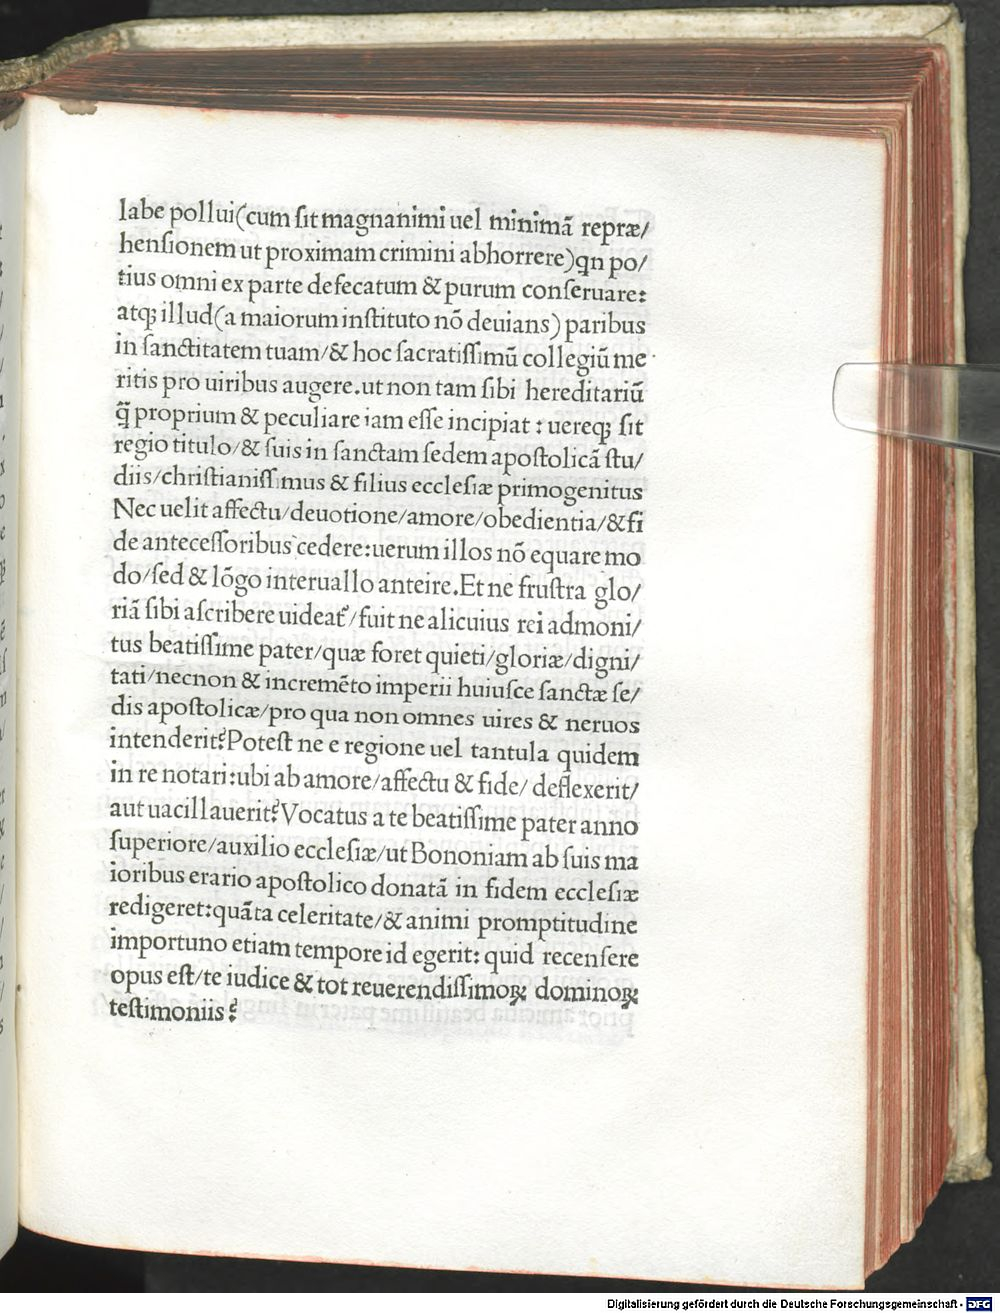 labe pollui(cum sit magnanimi uel minimã repræ/
hensionem ut proximam crimini abhorrere)qn po/
tius omni ex parte defecatum & purum conseruare:
atqꝫ illud(a maiorum instituto nõ deuians) paribus
in sanctitatem tuam/& hoc sacratissimũ collegiũ me
ritis pro uiribus augere.ut non tam sibi hereditariũ
q̃ proprium & peculiare iam esse incipiat : uereqꝫ sit
regio titulo/& suis in sanctam sedem apostolicã stu/
diis/christianissimus & filius ecclesiæ primogenitus
Nec uelit affectu/deuotione/amore/obedientia/&fi
de antecessoribus cedere:uerum illos nõ equare mo
do/sed & lõgo interuallo anteire.Et ne frustra glo/
riã sibi ascribere uideat᷑/fuit ne alicuius rei admoni/
tus beatissime pater/quæ foret quieti/gloriæ/digni/
tati/necnon & incremẽto imperii huiusce sanctæ se/
dis apostolicæ/pro qua non omnes uires & neruos
intenderit?Potest ne e regione uel tantula quidem
in re notari:ubi ab amore/affectu & fide/ deflexerit/
aut uacillauerit?Vocatus a te beatissime pater anno
superiore/auxilio ecclesiæ/ut Bononiam ab suis ma
ioribus erario apostolico donatã in fidem ecclesiæ
redigeret:quãta celeritate/& animi promptitudine
importuno etiam tempore id egerit: quid recensere
opus est/te iudice & tot reuerendissimoꝝ dominoꝝ
testimoniis?
Digitalisierung gefördert durch die Deutsche Forschungsgemeinschaft - DFG